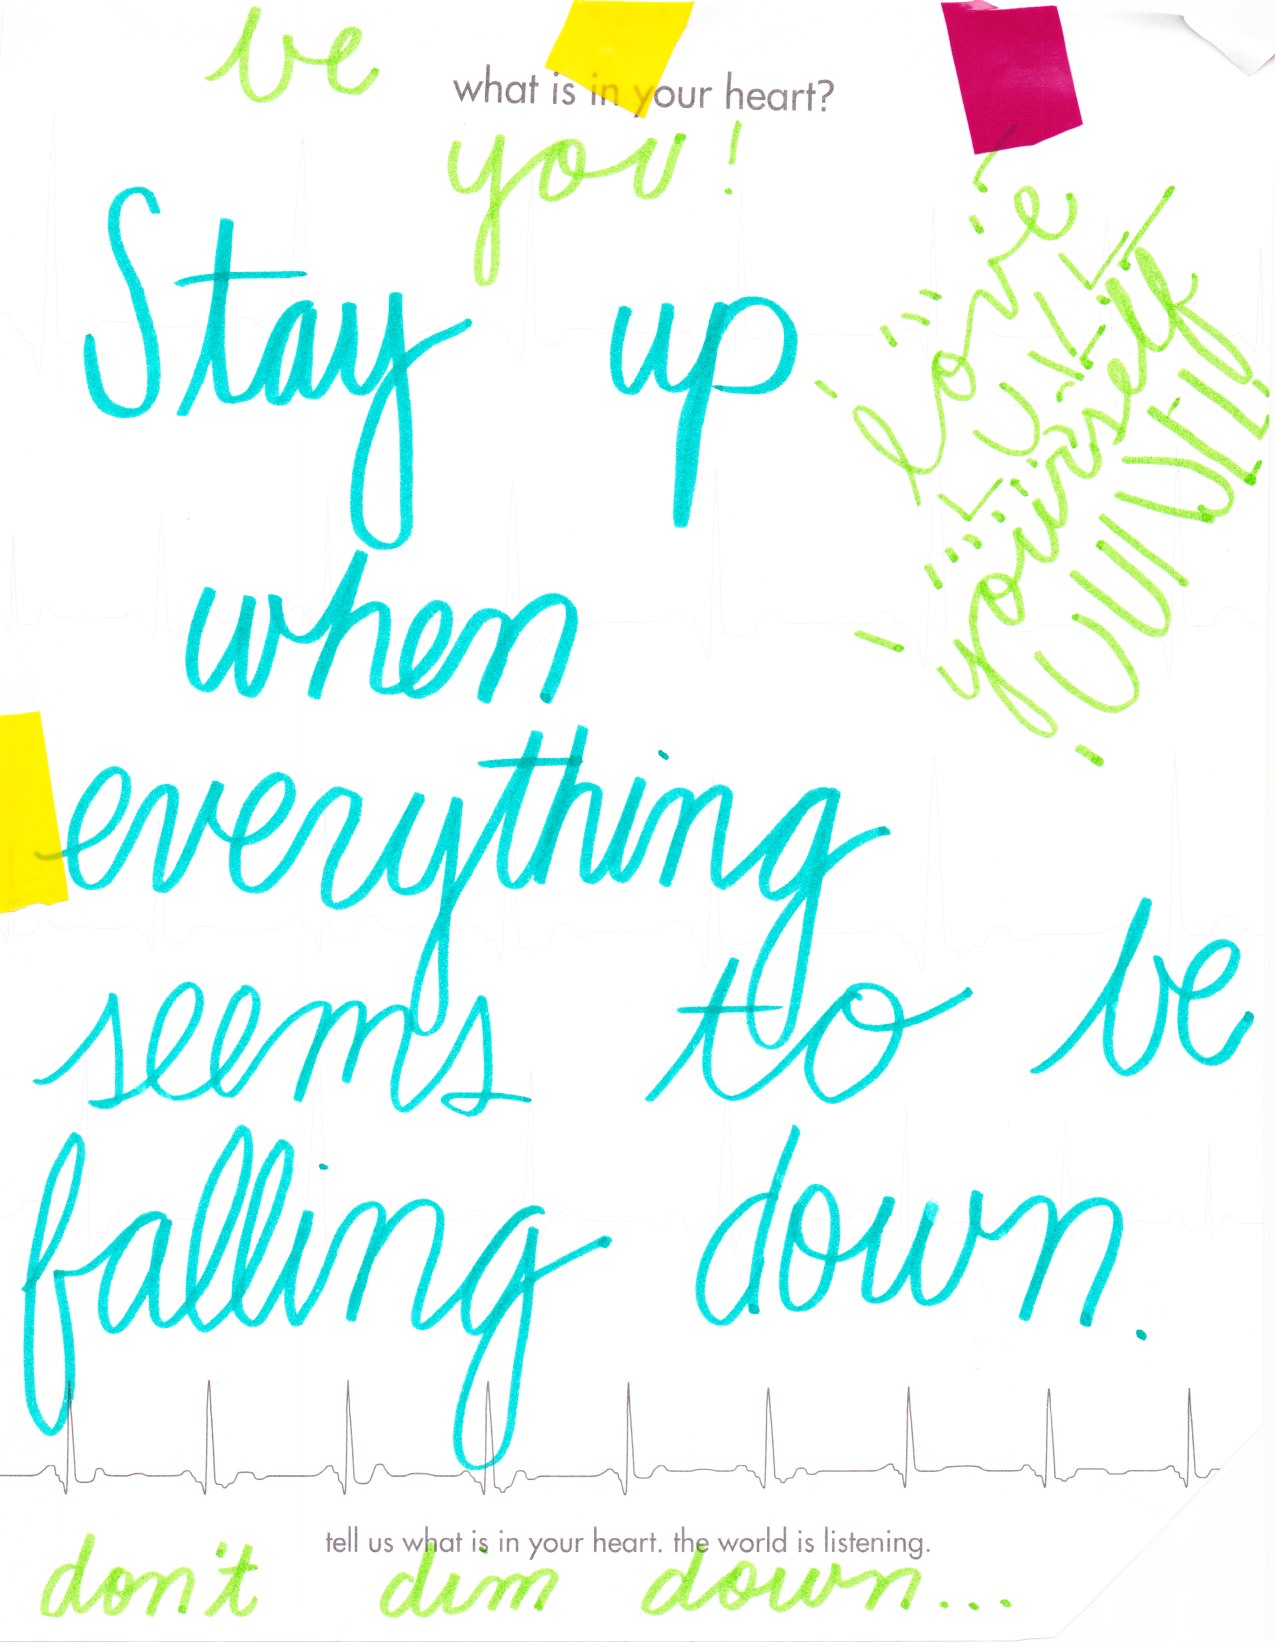 be
what is in your heart?
you!
Stay up
love
yourself
when
everything
seems to be
falling down.
tell us what is in your heart. the world is listening.
don't dim down...